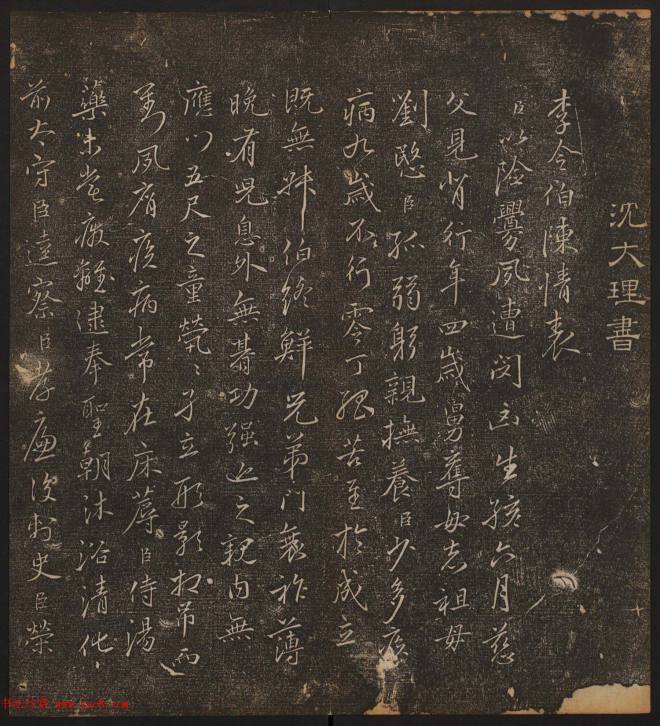 沈大理書
李令伯陳情表
臣以險釁夙遭閔凶生孩六月慈
父見背行年四歲舅奪母志祖母
劉愍臣孤弱躬親撫養臣少多疾
病九歲不行零丁孤苦至於成立
既無叔伯終鮮兄弟門衰祚薄
晚有兒息外無朞功强近之親內無
應門五尺之童煢〻孑立形影相吊而
劉夙有疾病常在床蓐臣侍湯
藥未嘗廢離逮奉聖朝沐浴清化〻
前太守臣逵察臣孝廉後刺史臣榮